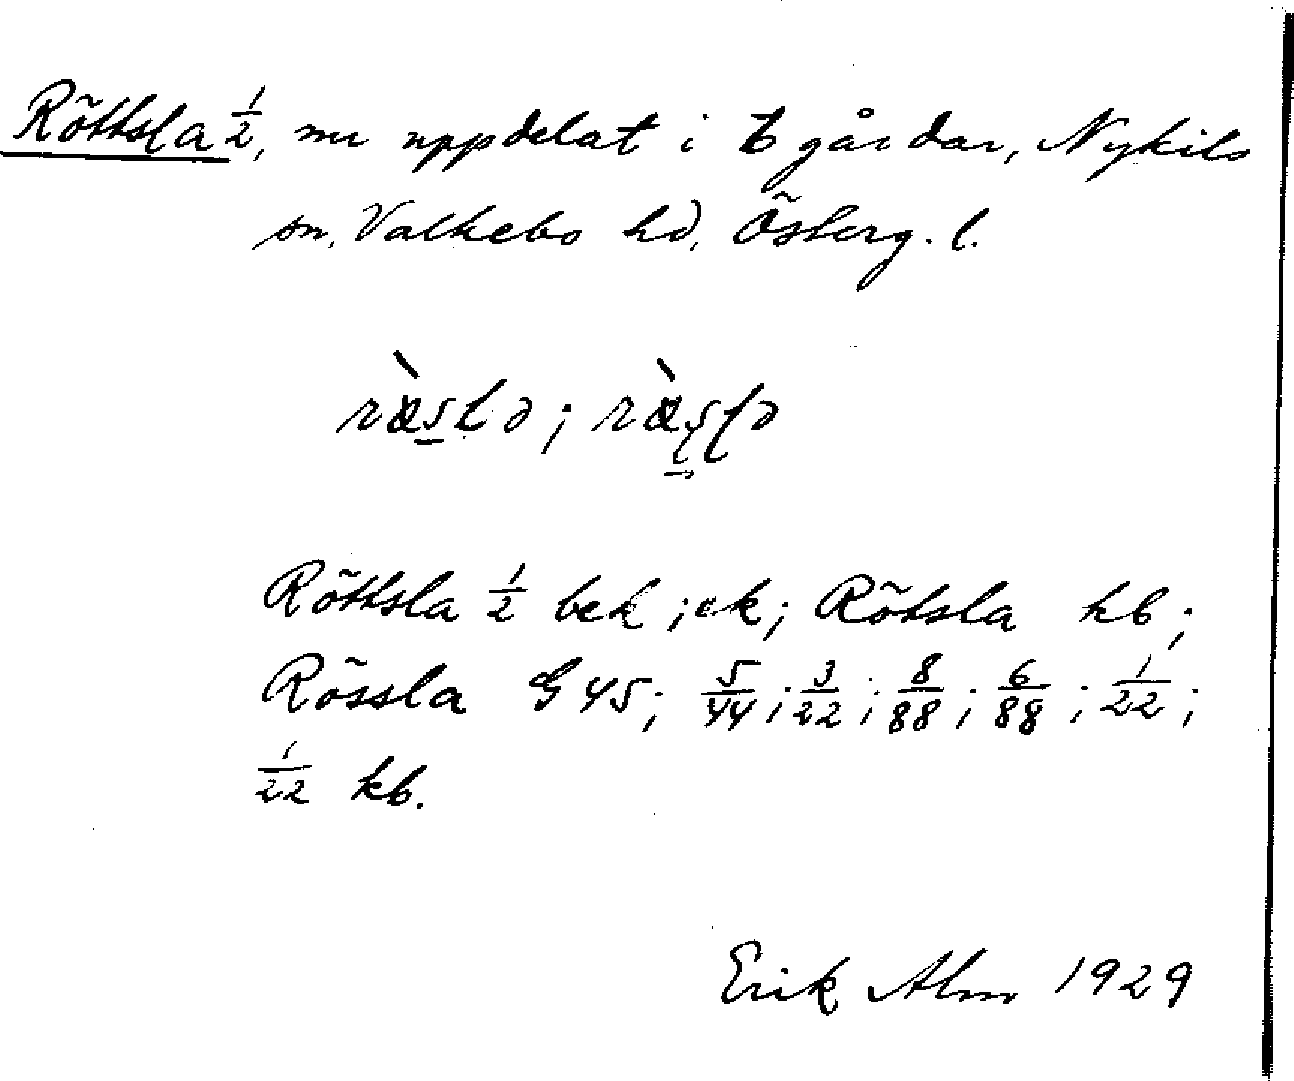 Röttsla 1/2, nu uppdelat i 6 gårdar, Nykils
sn, Valkebo hd, Österg. l.
Röttsla 1/2 bek; ek; Rötsla kb;
Rössla G 45; 5/44; 3/22; 8/88; 6/88; 1/22;
1/22 kb.
Erik Alm 1929